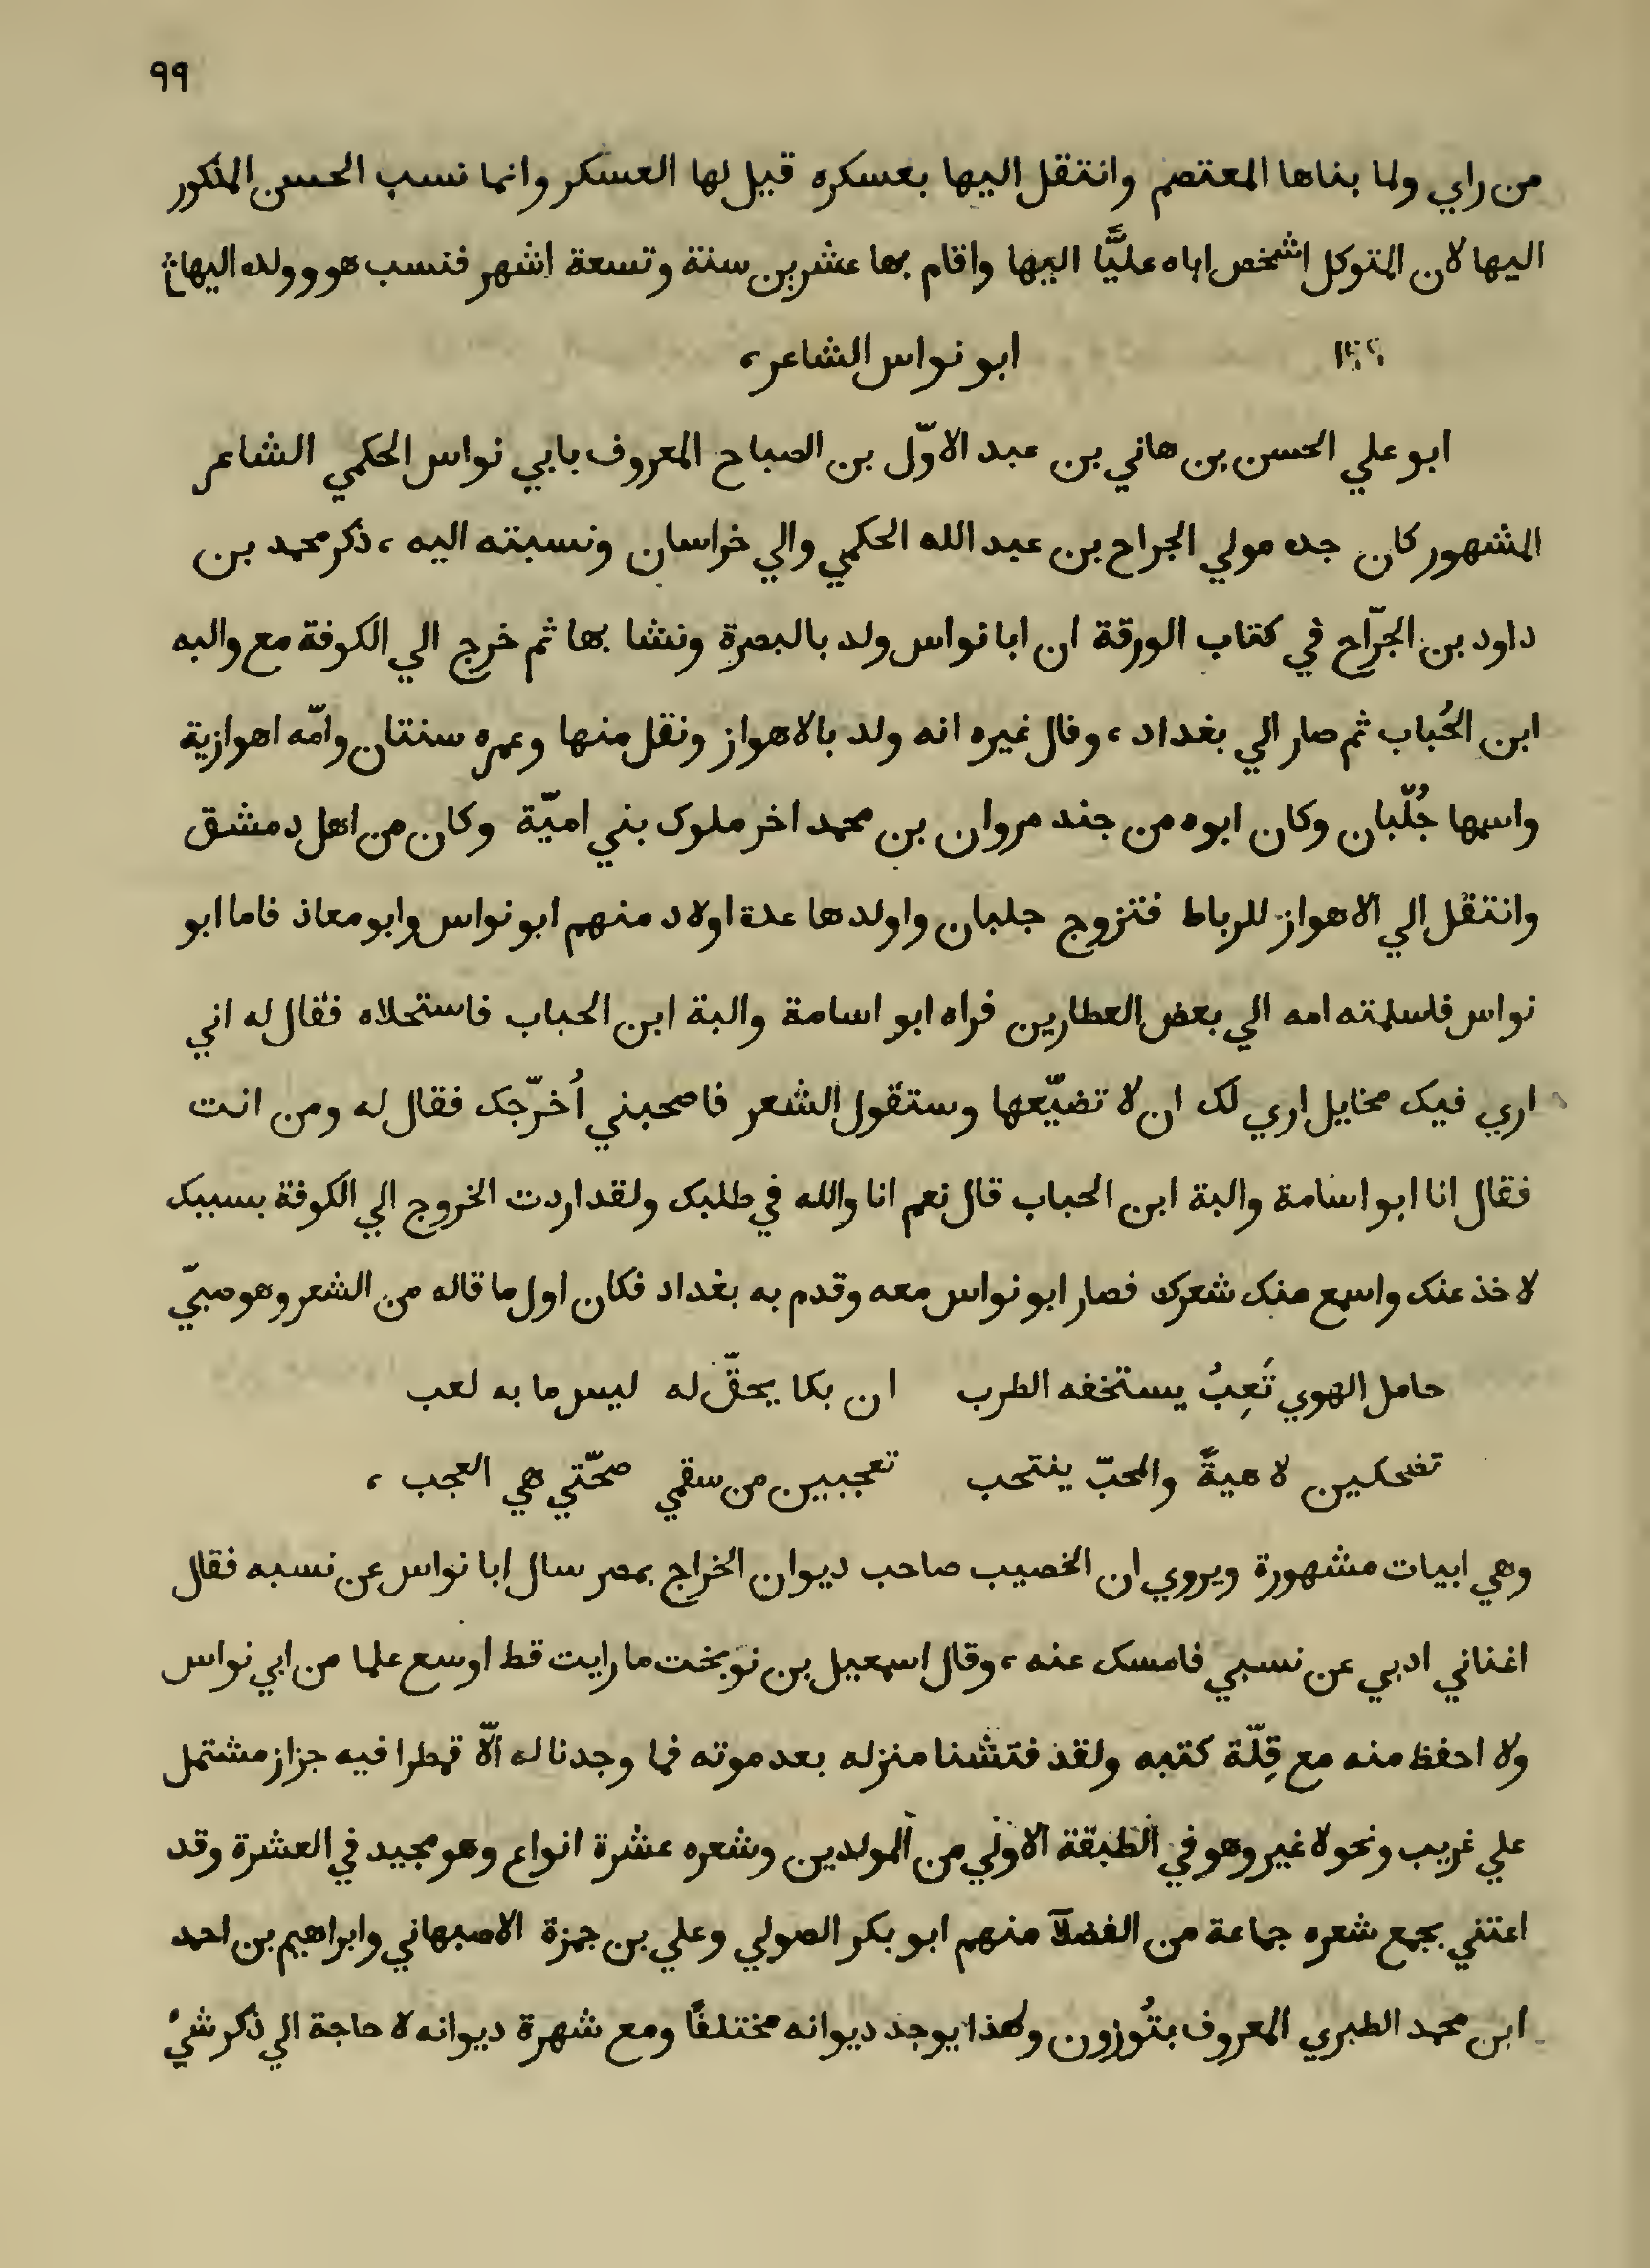 ٩٩
من راي ولما بناها المعتصم وانتقل اليها بعسكره قيل لها العسكر وانما نسب الحسن المذكور
اليها لان المتوكل اشخص اباه عليًّا اليها واقام بها عشرين سنة وتسعة اشهر فنسب هو وولده اليها
ابو نواس الشاعر،
ابو علي الحسن بن هاني بن عبد الاوّل بن الصباح المعروف بابي نواس الحكمي الشاعر
المشهور كان جده مولي الجراح بن عبد الله الحكمي والي خراسان ونسبته اليه، ذكر محمد بن
داود بن الجرّاح في كتاب الورقة ان ابا نواس ولد بالبصرة ونشا بها ثم خرج الي الكوفة مع والبه
ابن الحُباب ثم صار الي بغداد، وقال غيره انه ولد بالاهواز ونقل منها وعمره سنتان وامّه اهوازية
واسمها جُلّبان وكان ابوه من جند مروان بن محمد اخر ملوك بني اميّة وكان من اهل دمشق
وانتقل الي الاهواز للرباط فتزوج جلبان واولدها عدة اولاد منهم ابو نواس وابو معاذ فاما ابو
نواس فاسلمته امه الي بعض العطارين فراه ابو اسامة والبة ابن الحباب فاستحلاه فقال له اني
اري فيك مخايل اري لك ان لا تضيّعها وستقول الشعر فاصحبني اُخرّجك فقال له ومن انت
فقال انا ابو اسامة والبة ابن الحباب قال نعم انا والله في طلبك ولقد اردت الخروج الي الكوفة بسببك
لاخذ عنك واسمع منك شعرك فصار ابو نواس معه وقدم به بغداد فكان اول ما قاله من الشعر وهو صبيّ
حامل الهوي تَعِبُ يستخفه الطرب ان بكا يحقّ له ليس ما به لعب
تضحكين لاهيةً والمحبّ ينتحب تعجبين من سقمي صحّتي هي العجب،
وهي ابيات مشهورة ويروي ان الخصيب صاحب ديوان الخراج بمصر سال ابا نواس عن نسبه فقال
اغناني ادبي عن نسبي فامسك عنه، وقال اسمعيل بن نوبخت ما رايت قط اوسع علما من ابي نواس
ولا احفظ منه مع قِلّة كتبه ولقد فتشنا منزله بعد موته فما وجدنا له الّا قمطرا فيه جزاز مشتمل
علي غريب ونحو لا غير وهو في الطبقة الاولي من المولدين وشعره عشرة انواع وهو مجيد في العشرة وقد
اعتني بجمع شعره جماعة من الفضلآ منهم ابو بكر الصولي وعلي بن حمزة الاصبهاني وابراهيم بن احمد
ابن محمد الطبري المعروف بتُوزون ولهذا يوجد ديوانه مختلفًا ومع شهرة ديوانه لا حاجة الي ذكر شيٌ